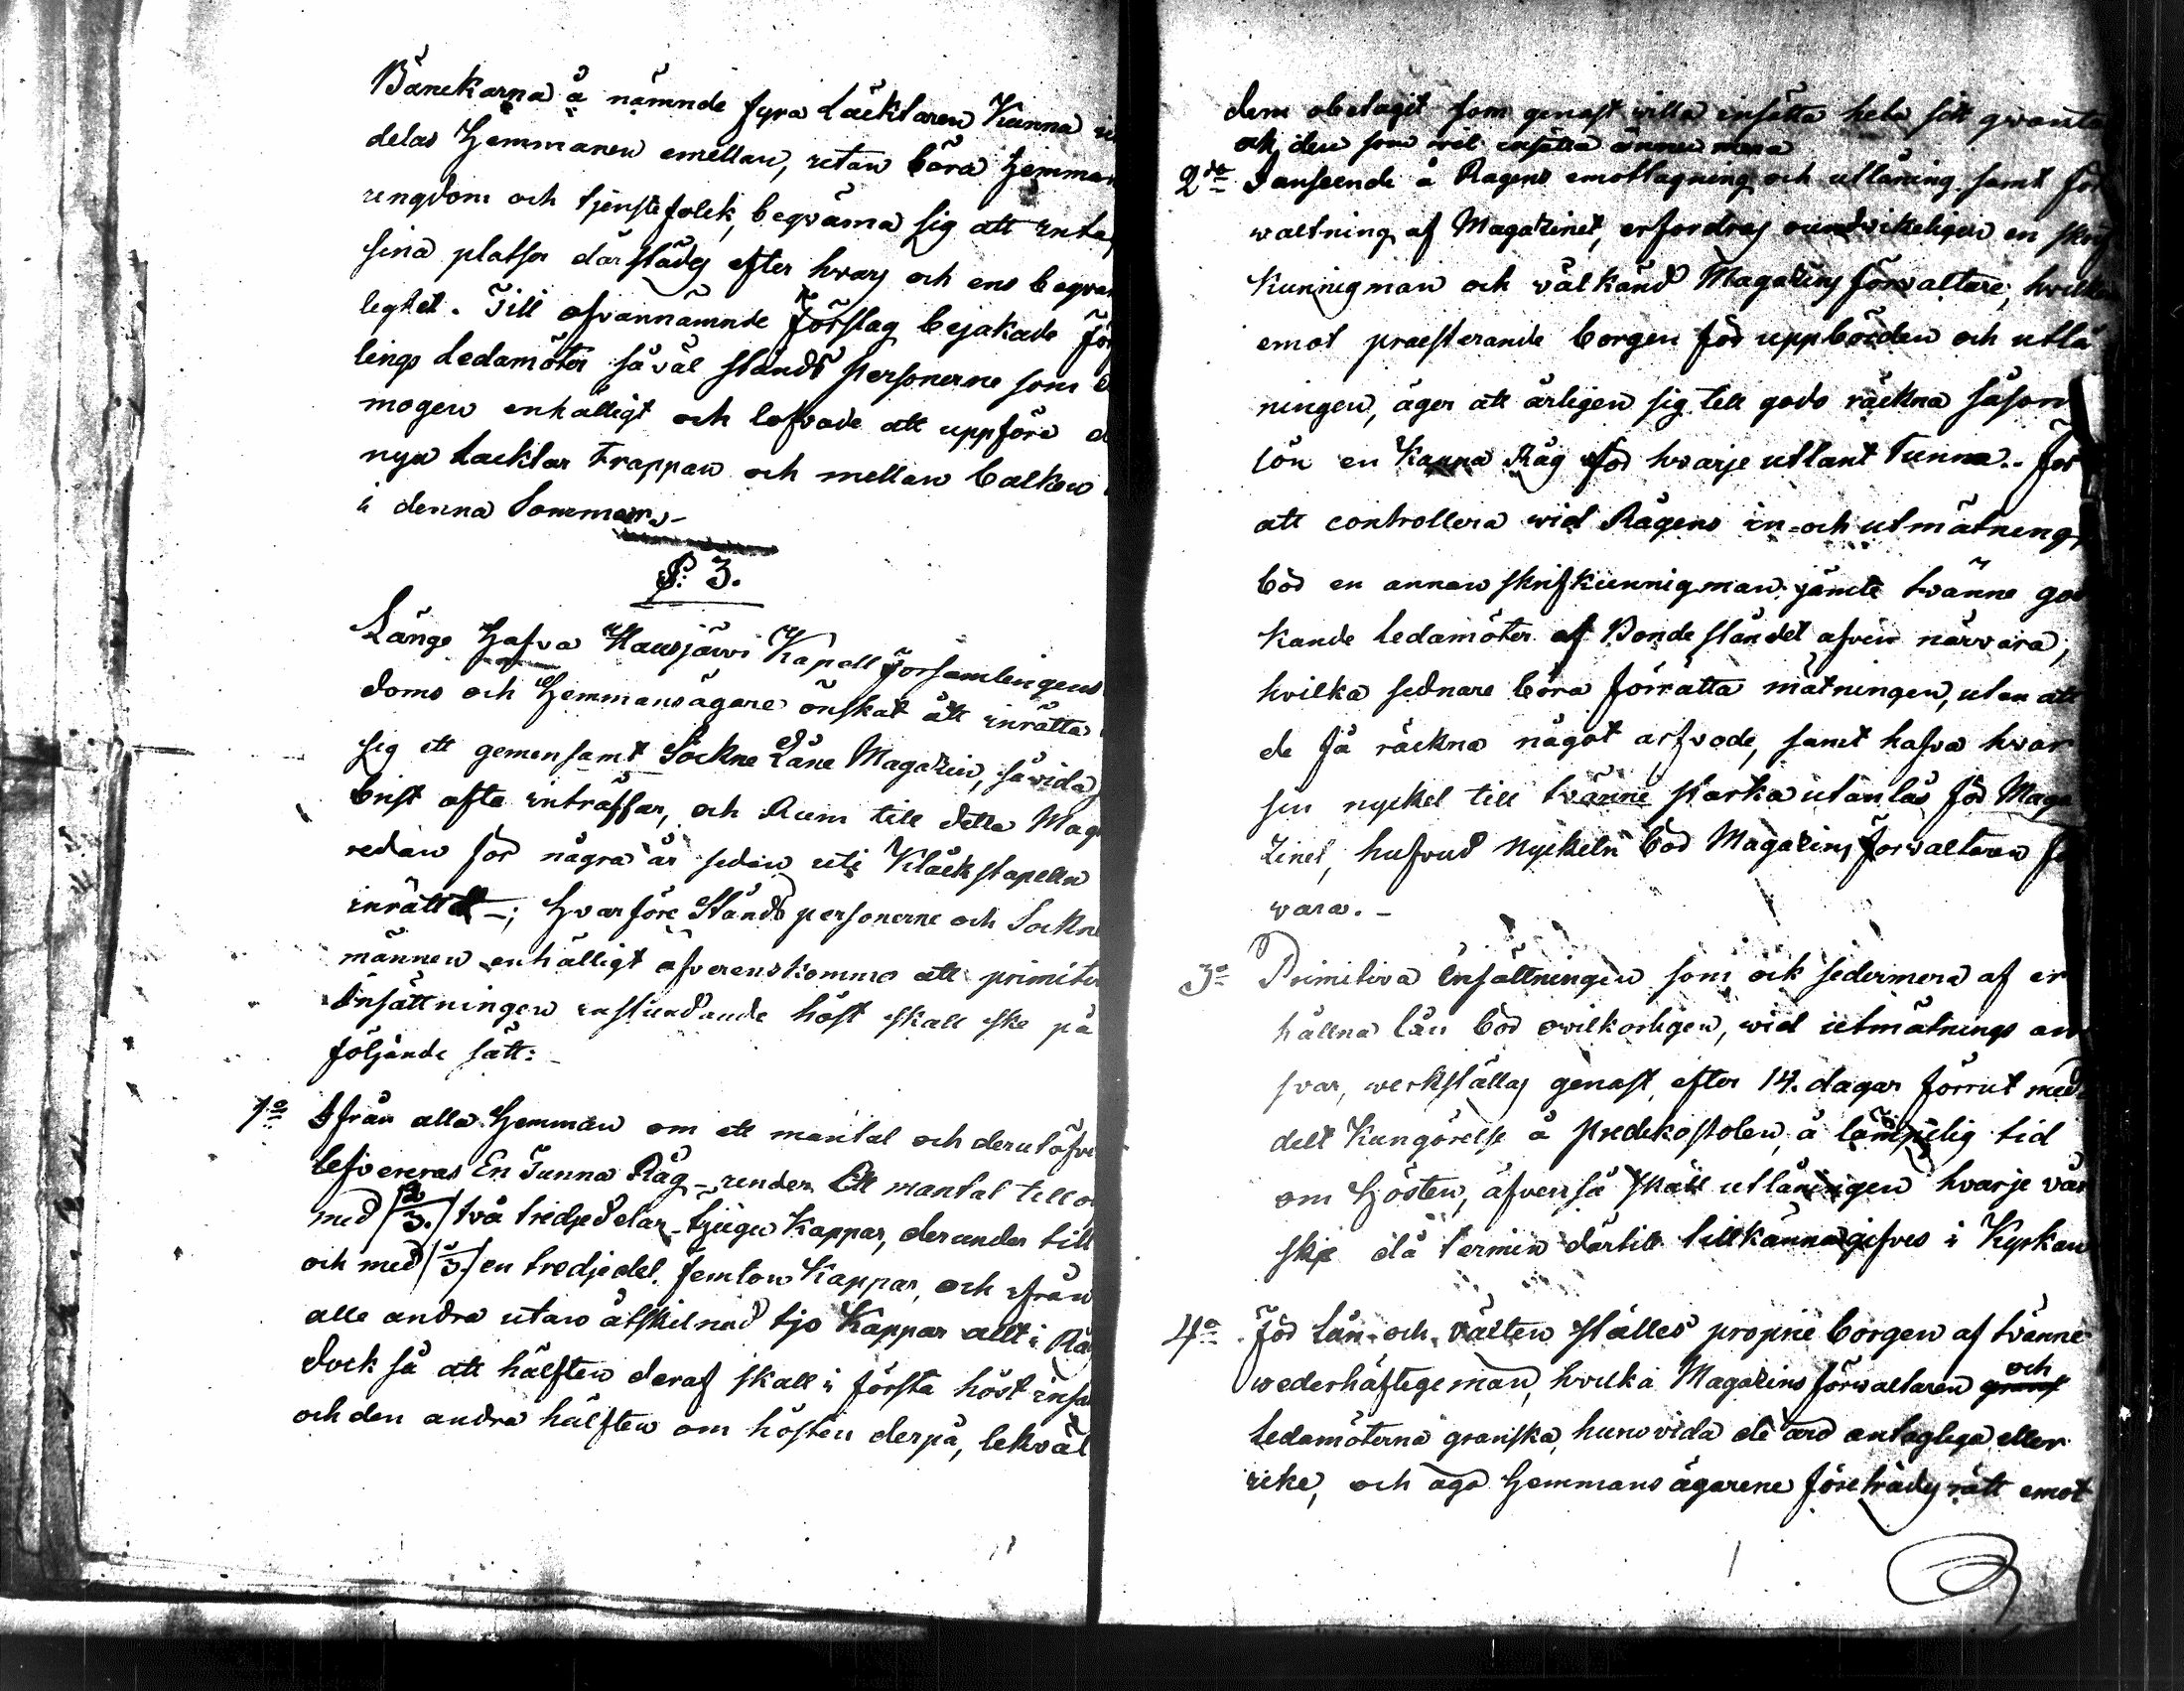 Bänckarna å nämnde fyra Läcktaren Kunna
delas Hemmanen emellan, utan böra Hemmans
ungdom och tjenstefolck, beqväma sig att intaga
sina platser därstädes efter hvars och ens beqväm
leghet. Till ofvannämnde förslag bejakade För
lings Ledamöter såväl Stånds Personerne som
mogen enhälligt och lofvade att uppföra
nya Lacktar Trappan och mellan balken
i denna Sommar.-
§: 3.
Länge Hafva Hausjärvi Kapell Församlingens
doms och Hemmansägare önskat att inrätta
sig ett gemensamt Sockne Låne Magazin, såvida
brist ofta inträffar, och Rum till detta Mag
redan för några år sedan uti Klåckstapeln
inrättat -; Hvarföre Stånds personerne och Sockne
männen enhälligt öfverenskommo att primitiva
Insättningen instundande höst skall ske på
följande sätt: -
1o Ifrån alla Hemman om ett mantal och derutöfver
lefvereras En Tunna Råg - under Ett mantal till o
med /2/3./ två tredjedelar - tjugu Kappar, derunder till
och med /1/3/ en tredjedel femton Kappar, och ifrån
alle andra utan åtskilnad tjo Kappar allt i Råg
dock så att hälften deraf skall i första höst insä
och den andra hälften om hösten derpå, lekväl
dem obetagit som genast villa insätta hela sitt qvanta
och den som vil insätta ännu mera
2do I anseende å Rågens emottagning och utlåning samt för
waltning af Magazinet, erfordras oundvikeligen en skrif
Kunnig man och välkänd Magazins förvaltare, hvilken
emot præsterande borgen för uppbörden och utlå
ningen, äger att årligen sig till godo räckna såsom
lön en Kanna Råg för hvarje utlänt Tunna.- För
att controllera wid Rågens in- och utmätning,
bör en annan skrifkunnig man jämte tvänne god
kände Ledamöter af Bonde ståndet äfven närvara,
hvilka sednare böra förrätta mätningen, utan att
de få räckna något arfvode, samt hafva hvar
sin nyckel till tvänne starka utanlås för Maga
zinet, hufvud nyckeln bör Magazins Förvaltaren
vara. -
3o Primitiva Insättningen som ock sedermera af er
hållna lån bör ovilkorligen, wid utmätnings an
svar, werkställas genast, efter 14. dagar förrut med
delt Kungörelse å Predikostolen, å lämpelig tid
om Hösten, äfvenså skall utlåningen hvarje vår
ske då termin därtill tillkännagifves i Kyrkan
4o För Lån och Välten ställes proprie borgen af tvänne
wederhäftige män, hvilka Magazins förvaltaren och
Ledamöterna granska, huruvida de äro antagliga eller
icke, och äga Hemmans ägarene företrädes rätt emot